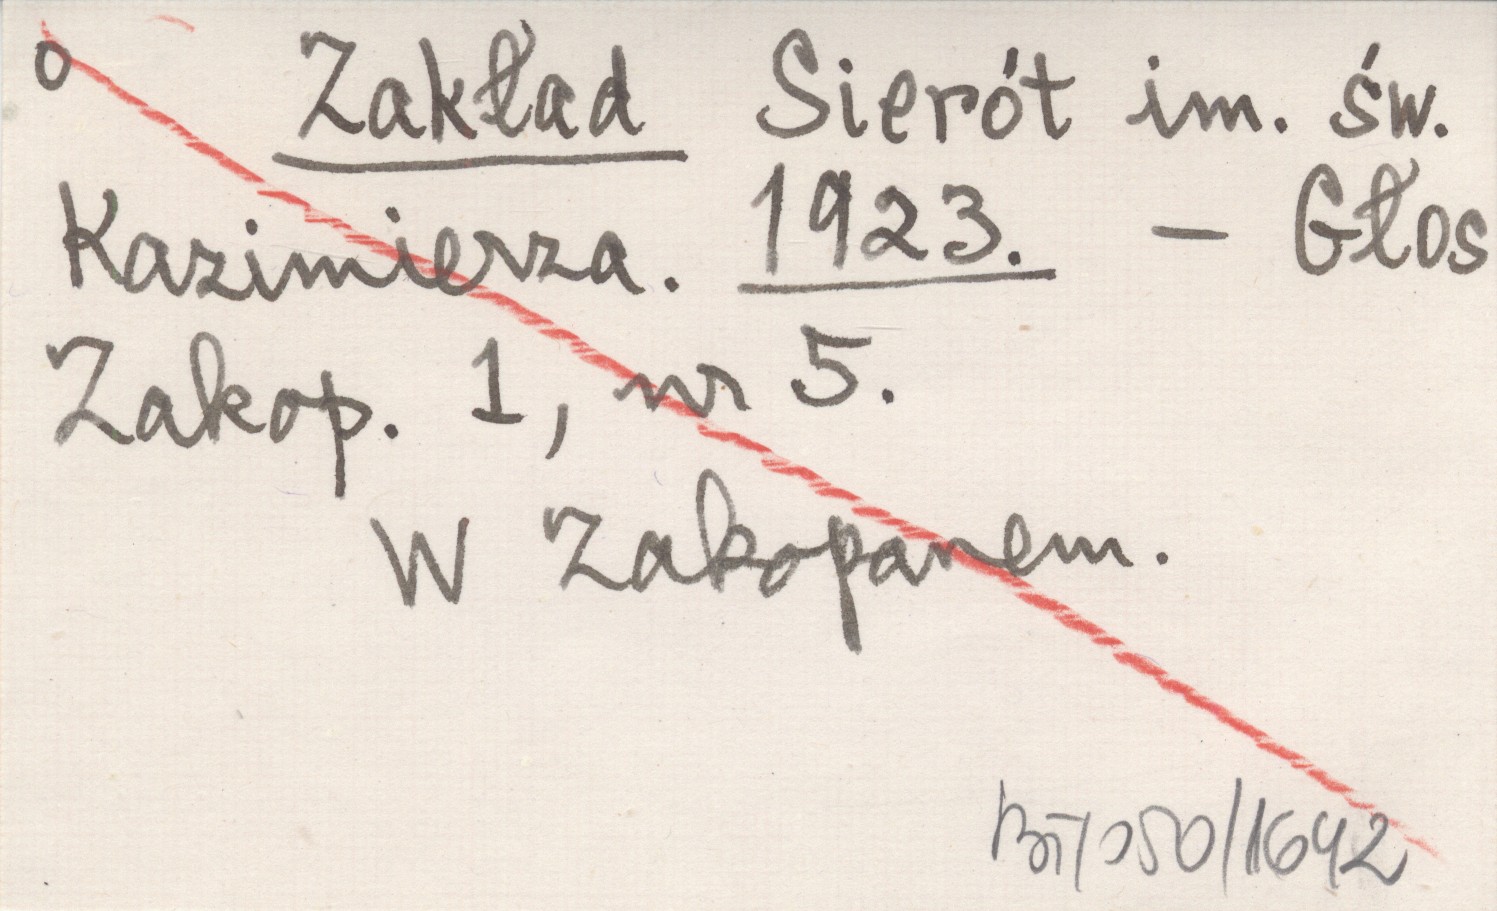 o Zakład Sierót im. św.
Kazimierza. 1923. – Głos
Zakop. 1, nr 5.
W Zakopanem.
/050/1642